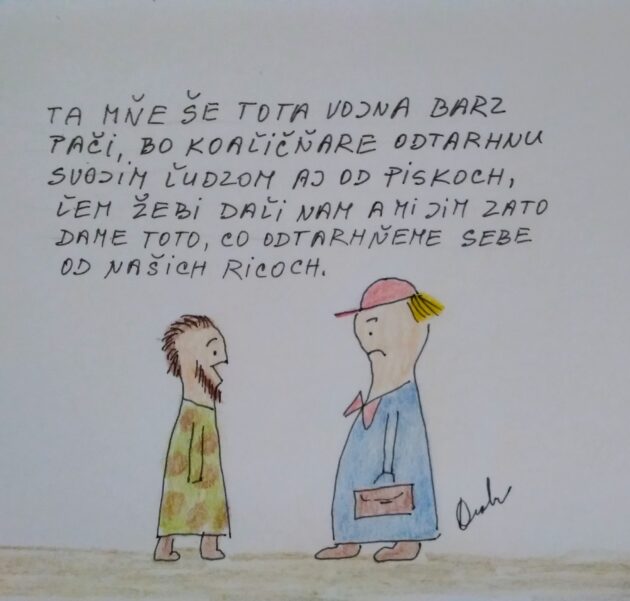 TA MŇE ŠE TOTA VOJNA BARZ
PAČI, BO KOALIČŇARE ODTARHNU
SVOJIM ĽUDZOM AJ OD PISKOCH,
ĽEM ŽEBI DAĽI NAM A MI JIM ZATO
DAME TOTO, CO ODTARHŇEME SEBE
OD NAŠICH RICOCH.